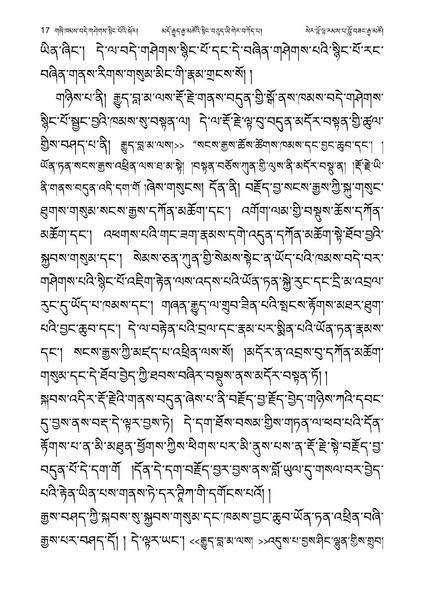 17 གཞི་ཁམས་བདེ་གཤེགས་སྙིང་པོའི་སྐོར། མདོ་རྒྱུད་རྒྱ་མཚོའི་སྙིང་བཅུད་ཡི་གེར་བཀོད་པ། སེར་བྱེ་
ཡིན་ཞིང་། དེ་ལ་བདེ་གཤེགས་སྙིང་པོ་དང་དེ་བཞིན་གཤེགས་པའི་སྙིང་པོ་རང་
བཞིན་གནས་རིགས་གསུམ་མིང་གི་རྣམ་གྲངས་སོ། །
གཉིས་པ་ནི། རྒྱུད་བླ་མ་ལས་རྡོ་རྗེ་གནས་བདུན་གྱི་སྒོ་ནས་ཁམས་བདེ་གཤེགས་
སྙིང་པོ་སྦྱང་བྱའི་ཁམས་སུ་བསྟན་ལ། དེ་ལ་རྡོ་རྗེ་ལྟ་བུ་བདུན་མདོར་བསྟན་གྱི་ཚུལ་
གྱིས་བཤད་པ་ནི། རྒྱུད་བླ་མ་ལས།>> "སངས་རྒྱས་ཆོས་ཚོགས་ཁམས་དང་བྱང་ཆུབ་དང་། །
ཡོན་ཏན་སངས་རྒྱས་འཕྲིན་ལས་ཐ་མ་སྟེ། །བསྟན་བཅོས་ཀུན་གྱི་ལུས་ནི་མདོར་བསྡུ་ན། །རྡོ་རྗེ་ཡི་
ནི་གནས་བདུན་འདི་དག་གོ །ཞེས་གསུངས། དོན་ནི། བརྗོད་བྱ་སངས་རྒྱས་ཀྱི་སྐུ་གསུང་
ཐུགས་གསུམ་སངས་རྒྱས་དཀོན་མཆོག་དང་། འགོག་ལམ་གྱི་བསྡུས་ཆོས་དཀོན་
མཆོག་དང་། འཕགས་པའི་གང་ཟག་རྣམས་དགེ་འདུན་དཀོན་མཆོག་སྟེ་ཐོབ་བྱའི་
སྐྱབས་གསུམ་དང་། སེམས་ཅན་ཀུན་གྱི་སེམས་སྟེང་ན་ཡོད་པའི་ཁམས་བདེ་བར་
གཤེགས་པའི་སྙིང་པོ་འཇིག་རྟེན་ལས་འདས་པའི་ཡོན་ཏན་སྐྱེ་རུང་དང་དྲི་མ་འབྲལ་
རུང་དུ་ཡོད་པ་ཁམས་དང་། གཞན་རྒྱུད་ལ་གྲུབ་ཟིན་པའི་སྤངས་རྟོགས་མཐར་ཐུག་
པའི་བྱང་ཆུབ་དང་། དེ་ལ་བརྟེན་པའི་བྲལ་དང་རྣམ་པར་སྨིན་པའི་ཡོན་ཏན་རྣམས་
དང་། སངས་རྒྱས་ཀྱི་མཛད་པ་འཕྲིན་ལས་སོ། །མདོར་ན་འབྲས་བུ་དཀོན་མཆོག་
གསུམ་དང་དེ་ཐོབ་བྱེད་ཀྱི་ཐབས་བཞིར་བསྡུས་ནས་མདོར་བསྟན་ཏོ། །
སྐབས་འདིར་རྡོ་རྗེའི་གནས་བདུན་ཞེས་པ་ནི་བརྗོད་བྱ་རྗོད་བྱེད་གཉིས་ཀའི་དབང་
དུ་བྱས་ནས་བརྡ་དེ་ལྟར་བྱས་ཏེ། དེ་དག་ཐོས་བསམ་གྱིས་གཏན་ལ་ཕབ་པའི་དོན་
རྟོགས་པ་ན་མི་མཐུན་ཕྱོགས་ཀྱིས་ཕིགས་པར་མི་ནུས་པས་ན་རྡོ་རྗེ་སྟེ་བརྗོད་བྱ་
བདུན་པོ་དེ་དག་གོ །དོན་དེ་དག་བརྗོད་བྱར་བྱས་ནས་བློ་ཡུལ་དུ་གསལ་བར་བྱེད་
པའི་རྟེན་ཡིན་པས་གནས་ཏེ་དར་ཊཱིཀ་གི་དགོངས་པའོ། །
རྒྱས་བཤད་ཀྱི་སྐབས་སུ་སྐྱབས་གསུམ་དང་ཁམས་བྱང་ཆུབ་ཡོན་ཏན་འཕྲིན་བཞི་
རྒྱས་པར་བཤད་དོ། ། དེ་ལྟར་ཡང་། <<རྒྱུད་བླ་མ་ལས། >>འདུས་པ་བྱས་ཤིང་ལྷུན་གྱིས་གྲུབ།